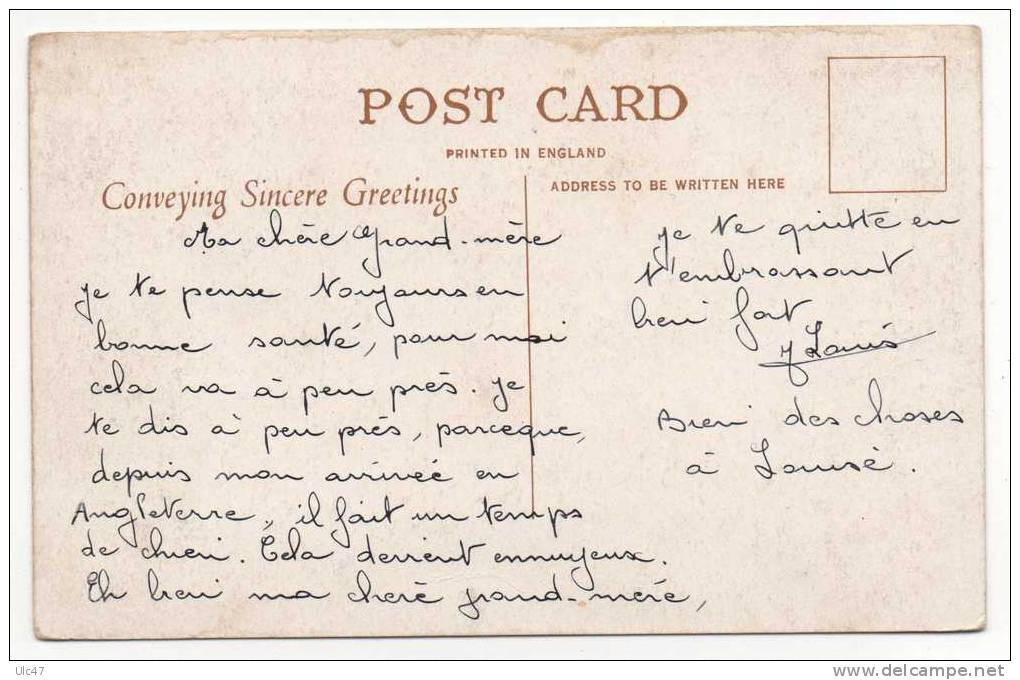 POST CARD
PRINTED IN ENGLAND
Conveying Sincere Greetings
ADDRESS TO BE WRITTEN HERE
Ma chère grand-mère
je te pense toujours en
bonne santé, pour moi
cela va à peu près. Je
te dis à peu près, parceque,
depuis mon arrivée en
Angleterre, il fait un temps
de chien. Cela devient ennuyeux.
Eh bien ma cherè grand-mère,
je te quitte en
t'embrassant
bien fort
Louis
Bien des choses
à Louise.
Ulc47
www.delcampe.net